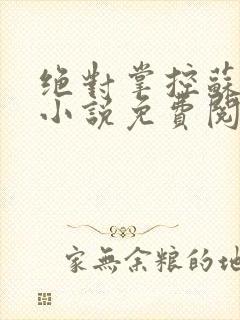 绝對掌控蘇
小說免費閱
家無余粮的地